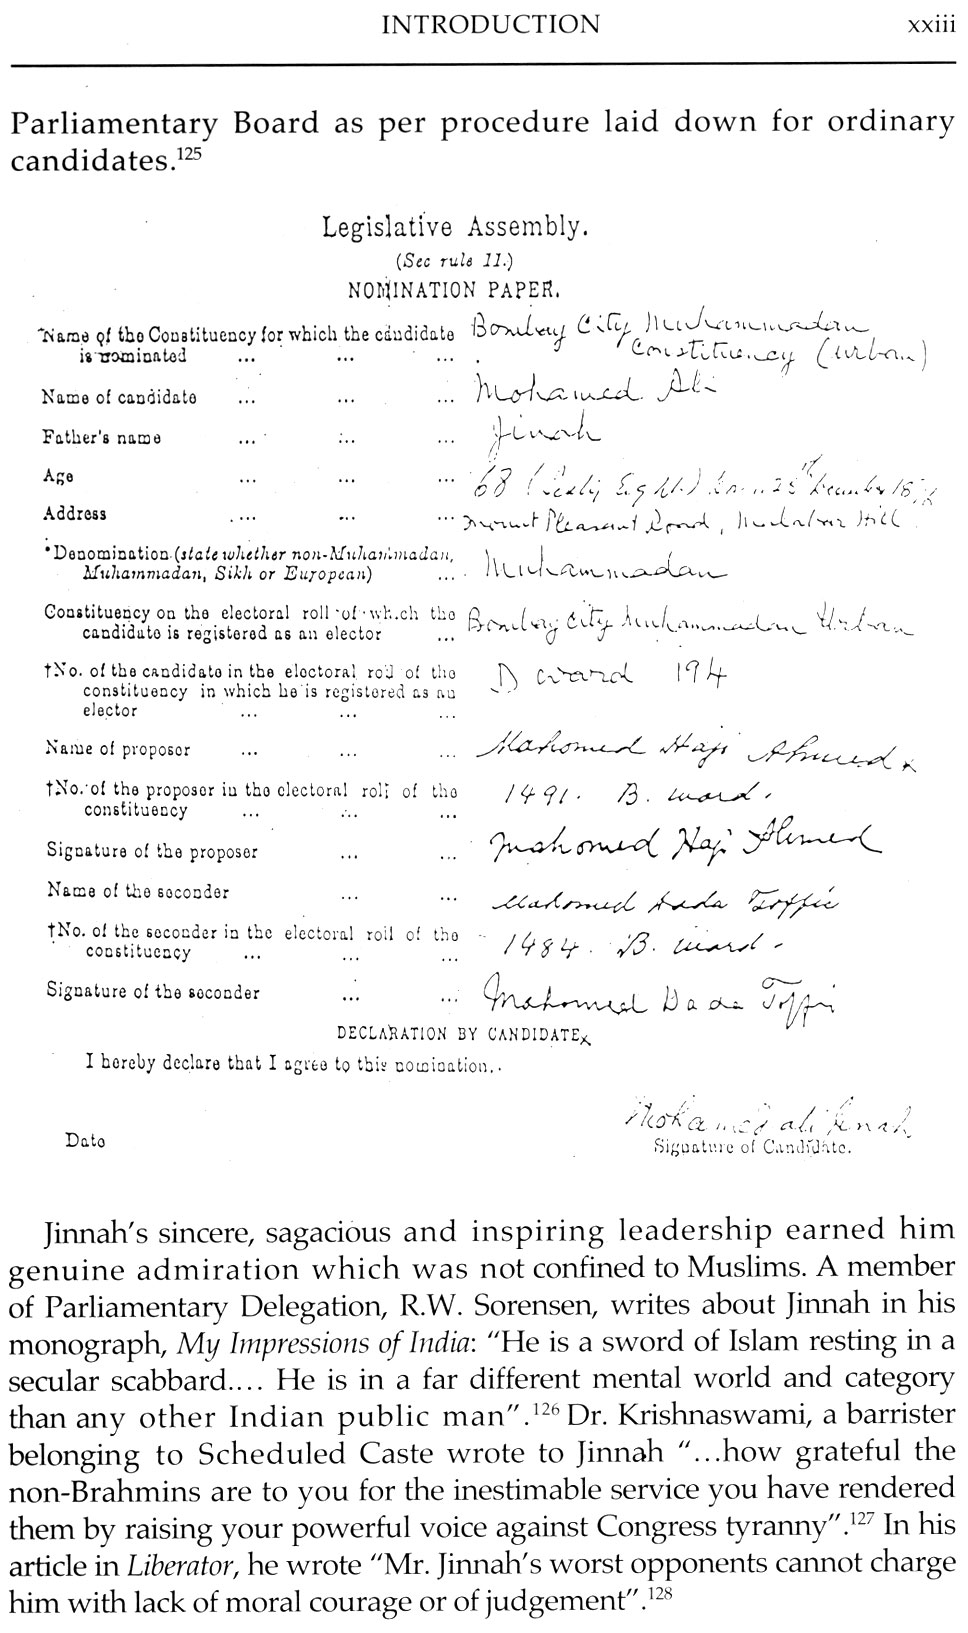 INTRODUCTION xxiii
Parliamentary Board as per procedure laid down for ordinary
candidates.125
Legislative Assembly.
(See rule 11.)
NOMINATION PAPER.
*Name of the Constituency for which the candidate Bombay City Muhammadan
is nominated ... ... ... Constituency (urban)
Name of candidate ... ... ... Mohamed Ali
Father's name ... ... ... Jinah
Age ... ... ... 68 (Sixty Eight) born 25th December 1876
Address ... ... ... Mount Pleasant Road, Malabar Hill
*Denomination (state whether non-Muhammadan,
Muhammadan, Sikh or European) ... Muhammadan
Constituency on the electoral roll of which the
candidate is registered as an elector ... Bombay City Muhammadan Urban
†No. of the candidate in the electoral roll of the
constituency in which he is registered as an D ward 194
elector ... ... ...
Name of proposer ... ... ... Mahomed Haji Ahmed x
†No. of the proposer in the electoral roll of the 1491. B. ward.
constituency ... ... ...
Signature of the proposer ... ... Mahomed Haji Ahmed
Name of the seconder ... ... Mahomed Dada
†No. of the seconder in the electoral roll of the 1484. B. ward.
constituency ... ... ...
Signature of the seconder ... ... Mahomed Dada
DECLARATION BY CANDIDATE x
I hereby declare that I agree to this nomination.
Mohamed Ali Jinnah
Date Signature of Candidate.
Jinnah's sincere, sagacious and inspiring leadership earned him
genuine admiration which was not confined to Muslims. A member
of Parliamentary Delegation, R.W. Sorensen, writes about Jinnah in his
monograph, My Impressions of India: "He is a sword of Islam resting in a
secular scabbard.... He is in a far different mental world and category
than any other Indian public man".126 Dr. Krishnaswami, a barrister
belonging to Scheduled Caste wrote to Jinnah "...how grateful the
non-Brahmins are to you for the inestimable service you have rendered
them by raising your powerful voice against Congress tyranny".127 In his
article in Liberator, he wrote "Mr. Jinnah's worst opponents cannot charge
him with lack of moral courage or of judgement".128